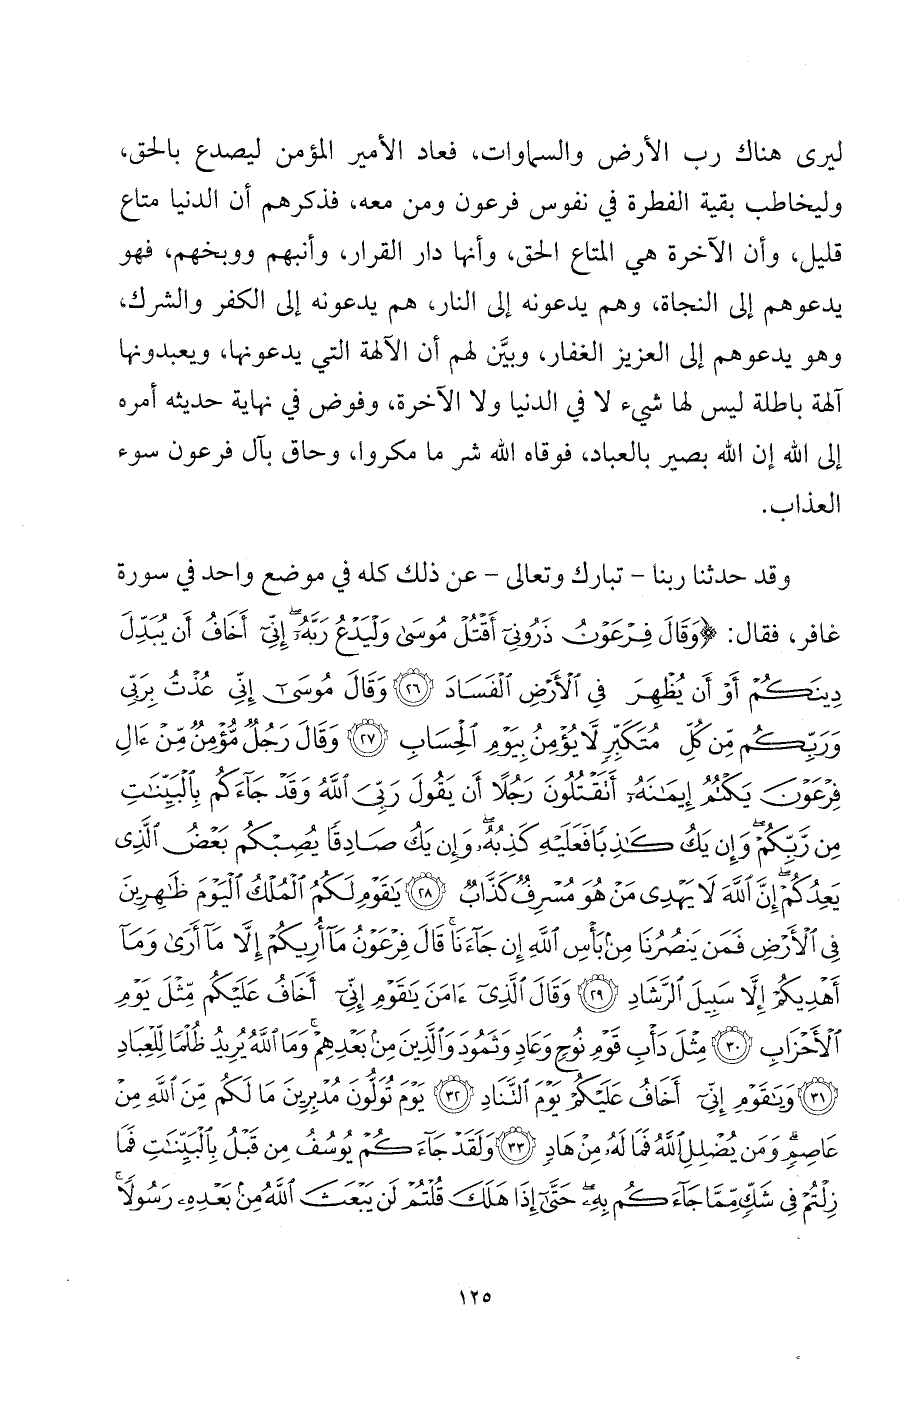 ليرى هناك رب الأرض والسماوات، فعاد الأمير المؤمن ليصدع بالحق،
وليخاطب بقية الفطرة في نفوس فرعون ومن معه، فذكرهم أن الدنيا متاع
قليل، وأن الآخرة هي المتاع الحق، وأنها دار القرار، وأنبهم ووبخهم، فهو
يدعوهم إلى النجاة، وهم يدعونه إلى النار، هم يدعونه إلى الكفر والشرك،
وهو يدعوهم إلى العزيز الغفار، وبيَّن لهم أن الآلهة التي يدعونها، ويعبدونها
آلهة باطلة ليس لها شيء لا في الدنيا ولا الآخرة، وفوض في نهاية حديثه أمره
إلى الله إن الله بصير بالعباد، فوقاه الله شر ما مكروا، وحاق بآل فرعون سوء
العذاب.
وقد حدثنا ربنا - تبارك وتعالى - عن ذلك كله في موضع واحد في سورة
غافر، فقال: ﴿وَقَالَ فِرْعَوْنُ ذَرُونِىٓ أَقْتُلْ مُوسَىٰ وَلْيَدْعُ رَبَّهُۥٓ ۖ إِنِّىٓ أَخَافُ أَن يُبَدِّلَ
دِينَكُمْ أَوْ أَن يُظْهِرَ فِى ٱلْأَرْضِ ٱلْفَسَادَ ﴿٢٦﴾ وَقَالَ مُوسَىٰٓ إِنِّى عُذْتُ بِرَبِّى
وَرَبِّكُم مِّن كُلِّ مُتَكَبِّرٍ لَّا يُؤْمِنُ بِيَوْمِ ٱلْحِسَابِ ﴿٢٧﴾ وَقَالَ رَجُلٌ مُّؤْمِنٌ مِّنْ ءَالِ
فِرْعَوْنَ يَكْتُمُ إِيمَـٰنَهُۥٓ أَتَقْتُلُونَ رَجُلًا أَن يَقُولَ رَبِّىَ ٱللَّهُ وَقَدْ جَآءَكُم بِٱلْبَيِّنَـٰتِ
مِن رَّبِّكُمْ ۖ وَإِن يَكُ كَـٰذِبًا فَعَلَيْهِ كَذِبُهُۥ ۖ وَإِن يَكُ صَادِقًا يُصِبْكُم بَعْضُ ٱلَّذِى
يَعِدُكُمْ ۖ إِنَّ ٱللَّهَ لَا يَهْدِى مَنْ هُوَ مُسْرِفٌ كَذَّابٌ ﴿٢٨﴾ يَـٰقَوْمِ لَكُمُ ٱلْمُلْكُ ٱلْيَوْمَ ظَـٰهِرِينَ
فِى ٱلْأَرْضِ فَمَن يَنصُرُنَا مِنۢ بَأْسِ ٱللَّهِ إِن جَآءَنَا ۚ قَالَ فِرْعَوْنُ مَآ أُرِيكُمْ إِلَّا مَآ أَرَىٰ وَمَآ
أَهْدِيكُمْ إِلَّا سَبِيلَ ٱلرَّشَادِ ﴿٢٩﴾ وَقَالَ ٱلَّذِىٓ ءَامَنَ يَـٰقَوْمِ إِنِّىٓ أَخَافُ عَلَيْكُم مِّثْلَ يَوْمِ
ٱلْأَحْزَابِ ﴿٣٠﴾ مِثْلَ دَأْبِ قَوْمِ نُوحٍ وَعَادٍ وَثَمُودَ وَٱلَّذِينَ مِنۢ بَعْدِهِمْ ۚ وَمَا ٱللَّهُ يُرِيدُ ظُلْمًا لِّلْعِبَادِ
﴿٣١﴾ وَيَـٰقَوْمِ إِنِّىٓ أَخَافُ عَلَيْكُمْ يَوْمَ ٱلتَّنَادِ ﴿٣٢﴾ يَوْمَ تُوَلُّونَ مُدْبِرِينَ مَا لَكُم مِّنَ ٱللَّهِ مِنْ
عَاصِمٍ ۗ وَمَن يُضْلِلِ ٱللَّهُ فَمَا لَهُۥ مِنْ هَادٍ ﴿٣٣﴾ وَلَقَدْ جَآءَكُمْ يُوسُفُ مِن قَبْلُ بِٱلْبَيِّنَـٰتِ فَمَا
زِلْتُمْ فِى شَكٍّ مِّمَّا جَآءَكُم بِهِۦ ۖ حَتَّىٰٓ إِذَا هَلَكَ قُلْتُمْ لَن يَبْعَثَ ٱللَّهُ مِنۢ بَعْدِهِۦ رَسُولًا ۚ
١٢٥